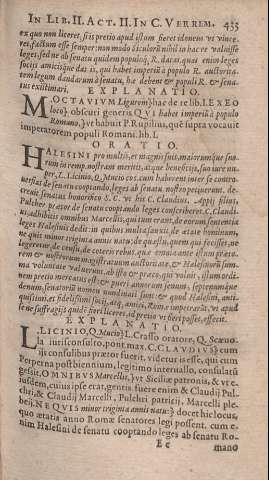 IN LIB. II. ACT. II. IN C. VERREM. 435
ex quo non liceret, si is pretio apud istum fieret idonem vt vince-
ret, factum esse semper: non modo Siculorū nihil in hac re valuisse
leges, sed ne ab senatu quidem populoq́; R. datas, quas enim leges
sociis amicisque dat is, qui habet imperiū à populo R. auctorita-
tem legum dandarum à senatu, hæ debent & populi R. & sena-
tus existimari.
EXPLANATIO.
M. OCTAVIVM Ligurem] hac de re lib. I. EX EO
loco] obscuri generis. QVI habet imperiū à populo
Romano,] vt habuit P. Rupilius, quē supra vocauit
imperatorem populi Romani. lib. I.
ORATIO.
HALESINI pro multis, et magnis suis, maiorumque suo-
rum in remp. nostram meritis, atque beneficiis, suo iure nu-
per, L. Licinio, Q. Mucio coss. cum haberent inter se contro-
uersias de senatu cooptando, leges ab senatu nostro petiuerunt. de-
creuit senatus honorifico S. C. vt his C. Claudius, Appij filius,
Pulcher prætor de senatu cooptando leges conscriberet. C. Claudi-
us, adhibitis omnibus Marcellis, qui tum erant, de eorum sententia
leges Halesinis dedit: in quibus multa sanxit, de ætate hominum,
ne quis minor triginta annis natu: de quæstu, quem qui fecisset, ne
legeretur, de censu, de ceteris rebus. quæ omnia ante istum præto-
rem & nostrorum magistratuum auctoritate, & Halesinorū sum-
ma voluntate valuerunt. ab isto & præco, qui voluit, illum ordi-
nem pretio mercatus est: & pueri annorum senum, septenumque
denum, senatoriū nomen nundinati sunt: & quod Halesini, anti-
quissimi, et fidelissimi socij, atq́; amici, Romæ impetrarāt, vt apud
se ne suffragiis quidē fieri liceret, id pretio vt fieri posset, effecit.
EXPLANATIO.
L. LICINIO, Q. Mucio] L. Crasso oratore, Q. Scæuo-
la iurisconsulto, pont. max. C. CLAVDIVS] eum
ijs consulibus prætor fuerit, videtur is esse, qui cum
Perperna post biennium, legitimo interuallo, consulatū
gessit. OMNIBVS Marcellis,] vt Siciliæ patronis, & vt e-
iusdem, cuius ipse erat, gentis. fuere enim & Claudij Pul-
chri, & Claudij Marcelli, Pulchri patricij, Marcelli ple-
beij. NE QVIS minor triginta annis natu:] docet hic locus,
quo ætatis anno Romæ senatores legi possent. cum e-
nim Halesini de senatu cooptando leges ab senatu Ro-
E e mano